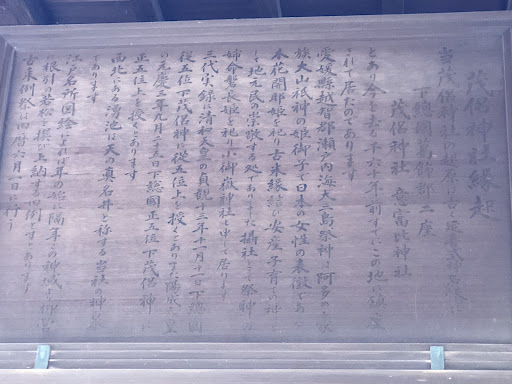 茂侶神社縁起
当茂侶神社の起原は古く延喜式神名帳に
下総國葛飾郡二座
茂侶神社 意富比神社
とあり今を去る千六十年前すでにこの地に鎮座
されて居たのであります
愛媛縣越智郡瀬戸内海大三島祭神 阿多の豪
族大山祇神の姫御子で日本の女性の表徴である
木花開耶姫を祀り古来縁結び安産子育の神と
して地元民の崇敬する処でありまし 攝社に祭神の
姉命磐長姫を祀り小御嶽神社と申して居ります
三代実録に清和天皇の貞観十三年十一月十一日下総國
従五位下茂侶神に従五位上を授くとあり又陽成天皇
の元慶三年九月二十五日下総國正五位下茂侶神に
正五位上を授くとあります
西北にある湧池は天の真名井と称する当社の神祭
であります
江戸名所図絵によれば年の始に隔年この神域より御宮
に根引の若松を撰び上納する旧例であります
古来例祭は旧暦六月一日に行う